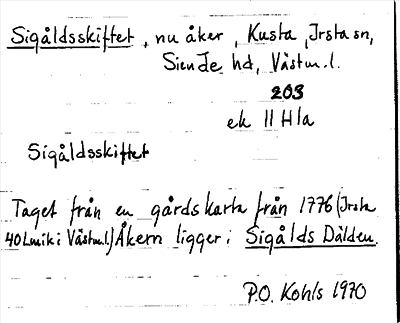 Sigåldsskiftet, nu åker, Kusta, Irsta sn,
Siende hd, Västm. l.
203
ek 11 H 1a
Sigåldsskiftet
Taget från en gårdskarta från 1776 (Irsta
40 Lmik i Västm.l.) Åkern ligger i Sigålds Dälden.
P.O. Kohls 1970